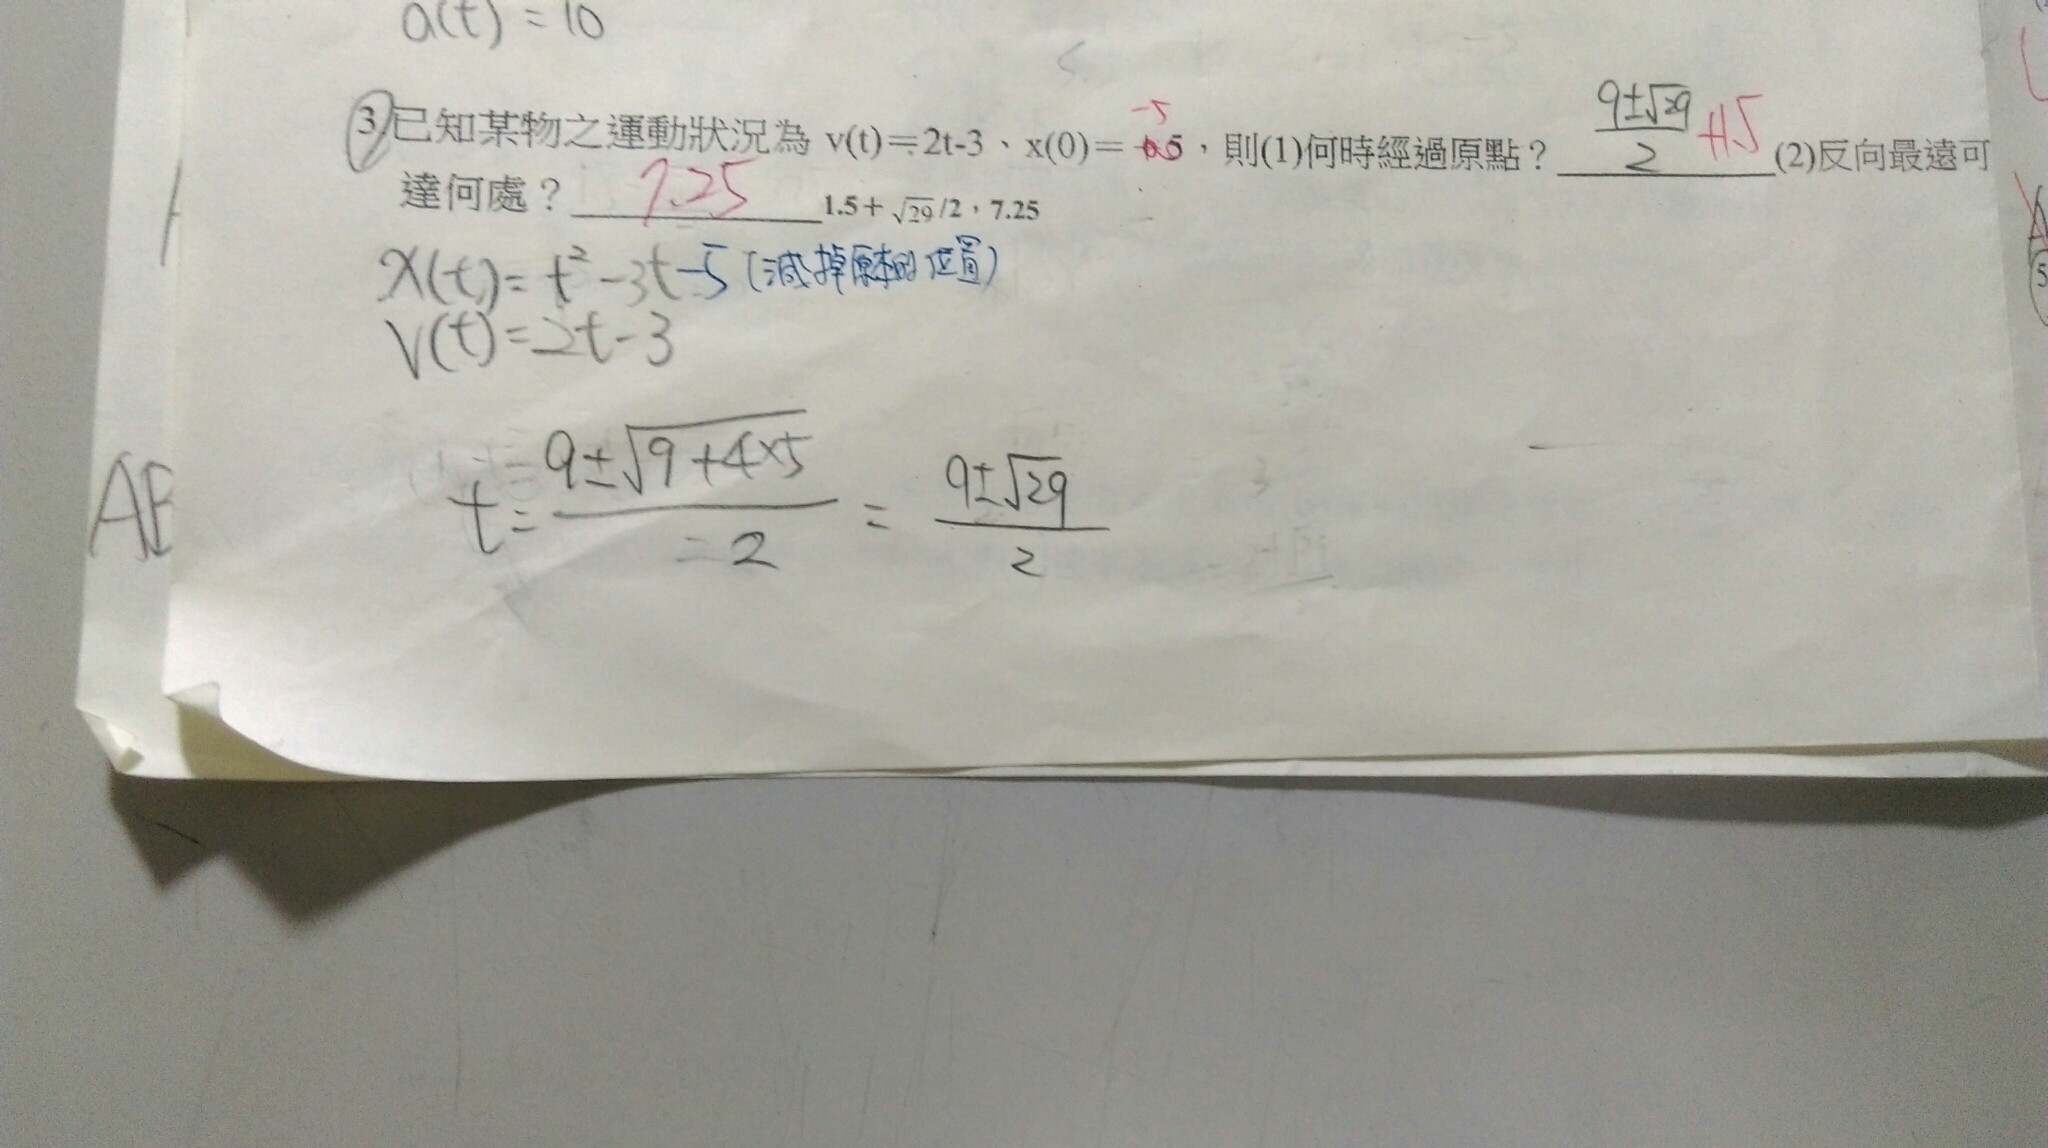 a(t) = 10
-5
9±√29
3 已知某物之運動狀況為 v(t)=2t-3、x(0)= 5，則(1)何時經過原點？ 9±√29/2 +1.5 (2)反向最遠可
達何處？ 7.25 1.5+ √29 /2，7.25
x(t)= t²-3t-5 (減掉原本的位置)
v(t)=2t-3
t= 9±√9+4×5 / =2 = 9±√29 / 2
AE
5